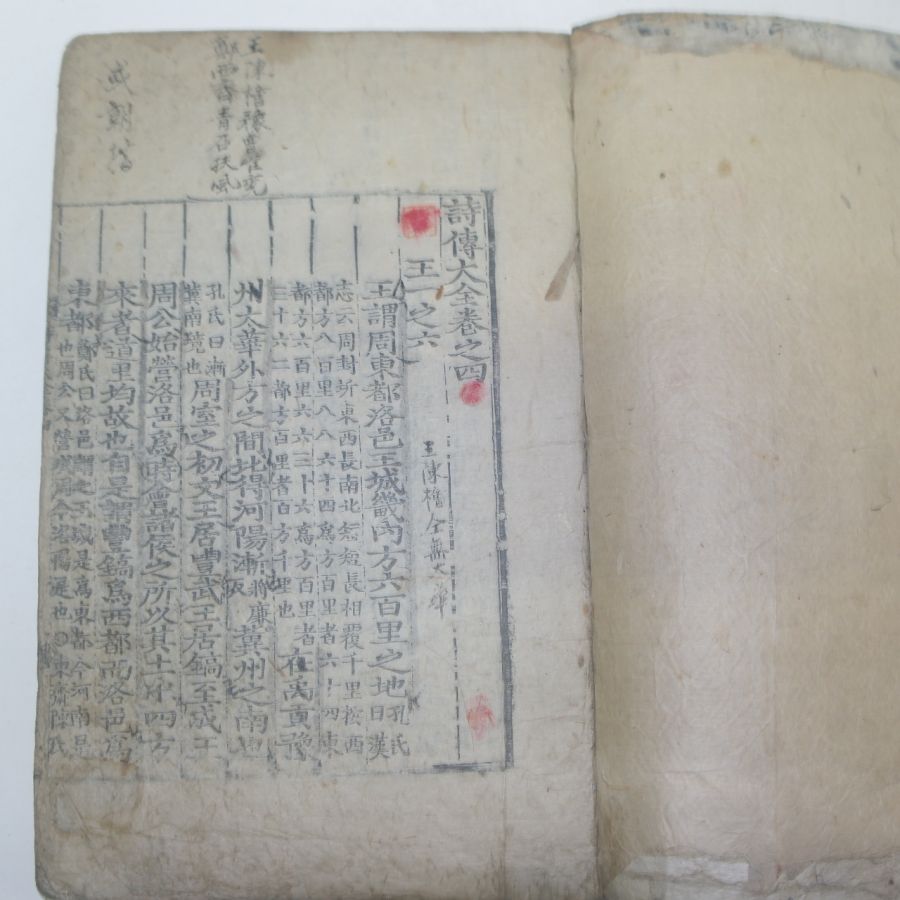 王陳檜豫
詩傳大全卷之四
王一之六
王謂周東都洛邑王城畿內方六百里之地孔氏曰漢
志云周封圻東西長南北短短長相覆千里於西
都方八百里八八六十四爲方百里者六十四東
都方六百里六六三十六爲方百里者
三十六二都方百里者百方千里也在禹貢豫
州太華外方之間北得河陽漸將廉反冀州之南也
孔氏曰漸冀南境也周室之初文王居豐武王居鎬至成王
周公始營洛邑爲時會諸侯之所以其土中四方
來者道里均故也自是謂豐鎬爲西都而洛邑爲
東都鄭氏曰洛邑謂之王城是爲東都今河南是
也周公又營成周今洛陽是也○東齋陳氏